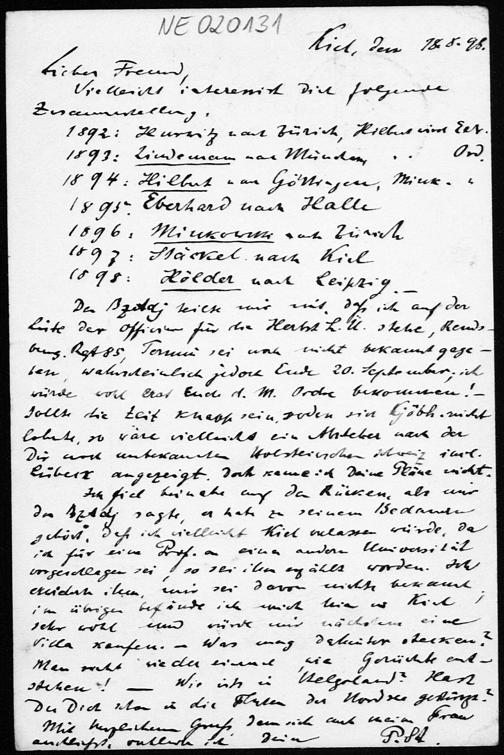 NE020131
Kiel, den 18.8.98.
Lieber Freund,
Vielleicht interessirt Dich folgende
Zusammenstellung.
1892: Hurwitz nach Zürich, Hilbert wird Extr.
1893: Lindemann nach München, " " Ord.
1894: Hilbert nach Göttingen, Mink. "
1895: Eberhard nach Halle
1896: Minkowski nach Zürich
1897: Stäckel nach Kiel
1898: Hölder nach Leipzig.
Der Bzkdj teilte mir mit, daß ich auf der
Liste der Officiere für die Herbst L. Ü. stehe, Rends-
burg, Rgt 85, Termin sei noch nicht bekannt gege-
ben, wahrscheinlich jedoch Ende 20. September, ich
würde wohl erst Ende d. M. Ordre bekommen! –
Sollte die Zeit knapp sein, sodass sich nicht
lohnte, so wäre vielleicht ein Abstecher nach der
Dir noch unbekannten Holsteinischen Schweiz incl.
Lübeck angezeigt. Doch kenne ich Deine Pläne nicht.
Ich fiel beinahe auf den Rücken, als mir
der Bzkdj sagte, er habe zu seinem Bedauern
gehört, daß ich vielleicht Kiel verlassen würde, da
ich für eine Prof. an einer andern Universität
vorgeschlagen sei, so sei ihm erzählt worden. Ich
erwiderte ihm, mir sei davon nichts bekannt,
im übrigen befände ich mich hier in Kiel
sehr wohl und würde mir nächstens eine
Villa kaufen. – Was mag dahinter stecken?
Man sieht wieder einmal wie Gerüchte ent-
stehen! – Wie ists in Helgoland? Hast
Du Dich schon in die Fluten der Nordsee gestürzt?
Mit herzlichem Gruß, dem sich auch meine Frau
anschließt, verbleibe ich Dein P. St.